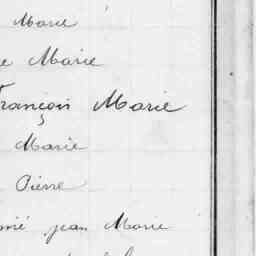 Marie
e Marie
François Marie
Marie
Pierre
jean Marie